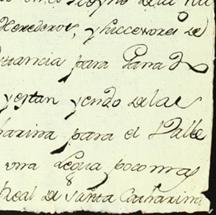 Herederos, y succesores de
stancia para Ganad
y estan yendo de la
harina para el Valle
una Legua poco mas
Real de Santa Catharina